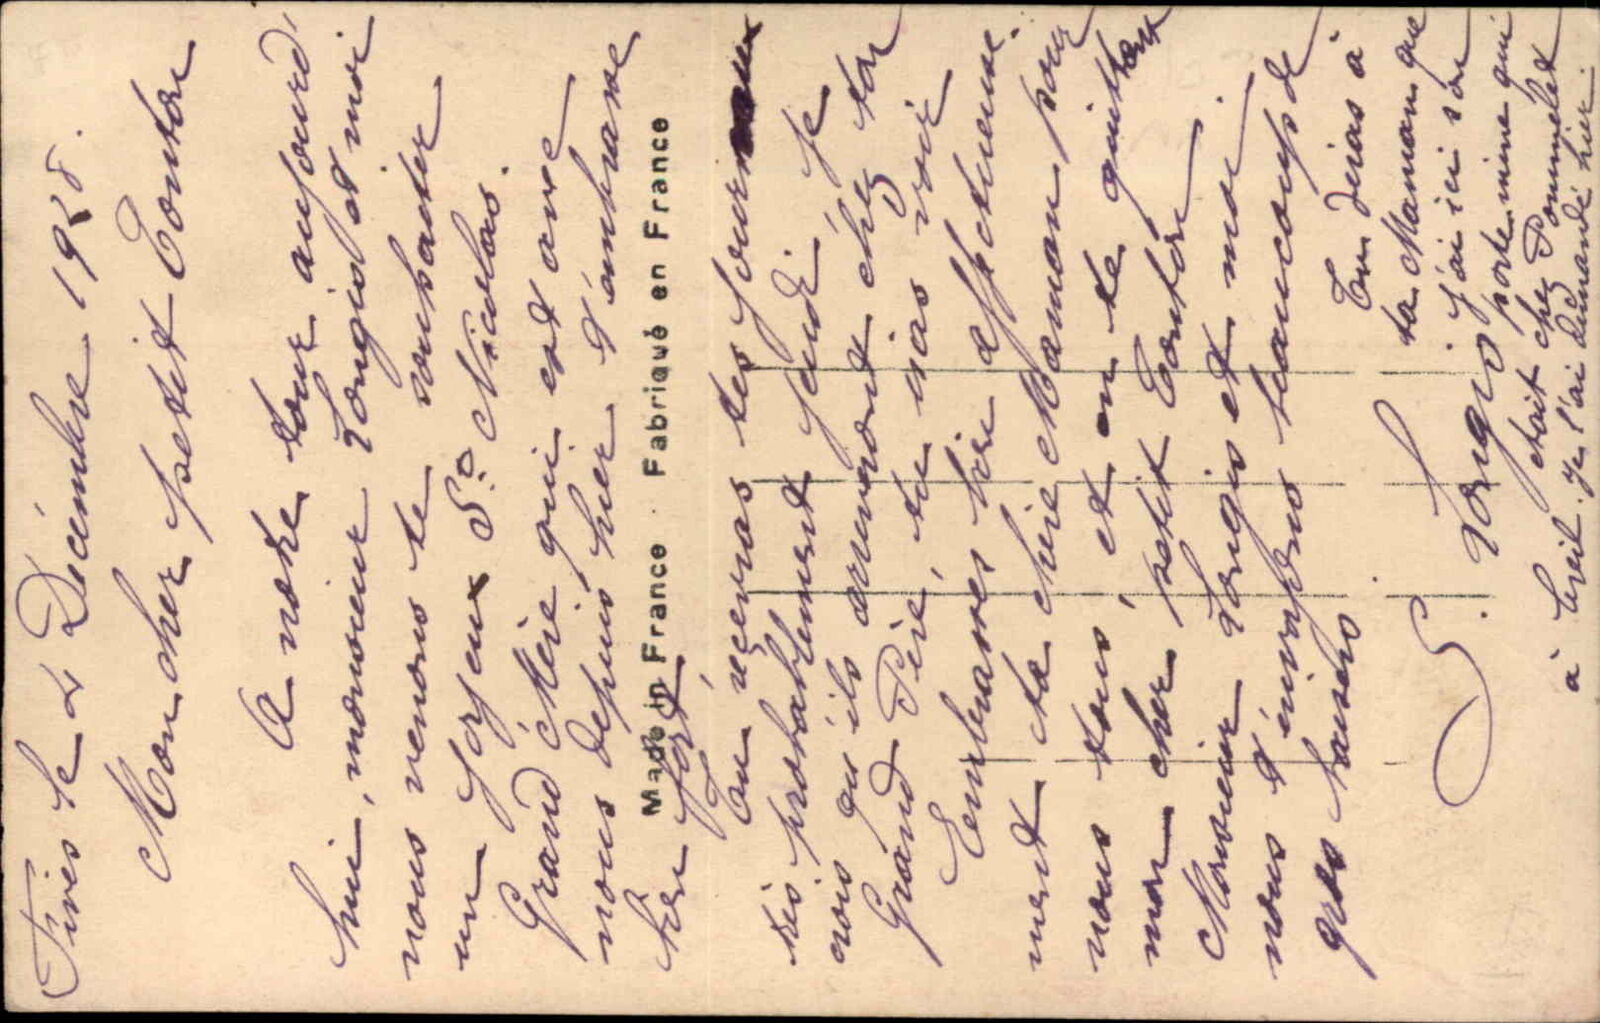 Fives le 2 Décembre 1928.
Mon cher petit Tonton
A notre tour aujourd'
hui, monsieur Longis et moi
nous venons te souhaiter
un joyeux St Nicolas.
Grand Mère qui est avec
nous depuis hier t'embrasse
bien fort.
Made in France Fabriqué en France
Tu recevras tes journaux
très probablement jeudi. Je
crois qu'ils arriveront chez ton
Grand Père, tu iras voir
Embrasses bien affectueuse-
ment ta chère Maman pour
nous tous, et en te quittant
mon cher petit Tonton
Monsieur Longis et moi
nous t'envoyons beaucoup de
gros baisers
S. Longis
Tu diras à
ta Maman que
j'ai ici son
porte mine qui
était chez Pommelet
à Creil. Je l'ai demandé hier.